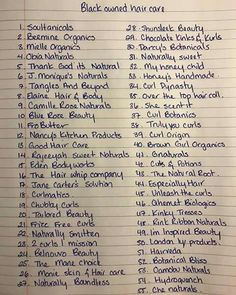 Black owned hair care
1. Soultanicals
2. Bermine Organics
3. Mielle Organics
4. Obia Naturals
5. Thank God its Natural
6. J. Monique's Naturals
7. Tangles And Beyond
8. Elaine Hair & Body
9. Camille Rose Naturals
10. Blue Rose Beauty
11. Fro Butter
12. Nancy's Kitchen Products
13. Good Hair Care
14. Rayeeyah Sweet Naturals
15. Eden Bodyworks
16. The Hair whip company
17. Jane Carter's Solution
18. Curlmatics
19. Chubby Curls
20. Tailored Beauty
21. Frizz Free Curls
22. Naturally Smitten
23. 2 curls 1 mission
24. Belnouvo Beauty
25. The Mane Choice
26. Monie skin & Hair care
27. Naturally Boundless
28. Shundeez Beauty
29. Chocolate Kinks & Kurls
30. Darcy's Botanicals
31. Naturalley sweet
32. Oh my honey child
33. Honey's Handmade
34. Curl Dynasty
35. Over the top hair coll.
36. She scent it
37. Curl Botanics
38. Trulyyou curls
39. Curl Origin
40. Brown Gurl Organics
41. Qhemet
42. Oils & Potions
43. The Natural Root
44. Especially Hair
45. Unleash the curls
46. Qhemet Biologics
47. Kinky Tresses
48. Kink Ribbon Naturals
49. Im Inspired Beauty
50. London ty products
51. Hairveda
52. Botanical Bliss
53. Naturals
54. Hydroquench
55. Che naturals